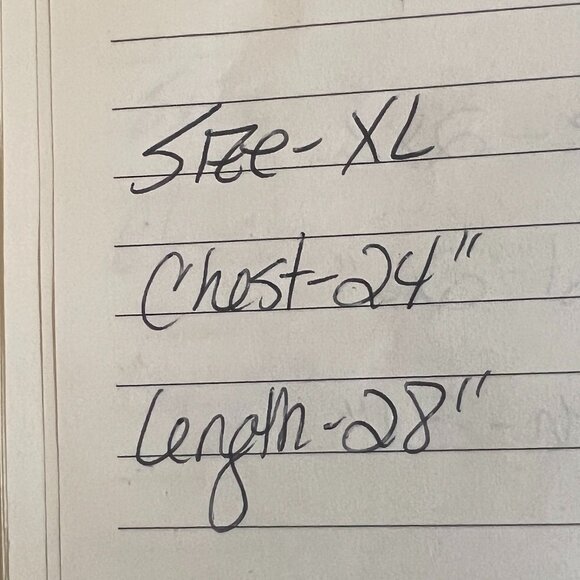 Size- XL
Chest-24"
Length-28"